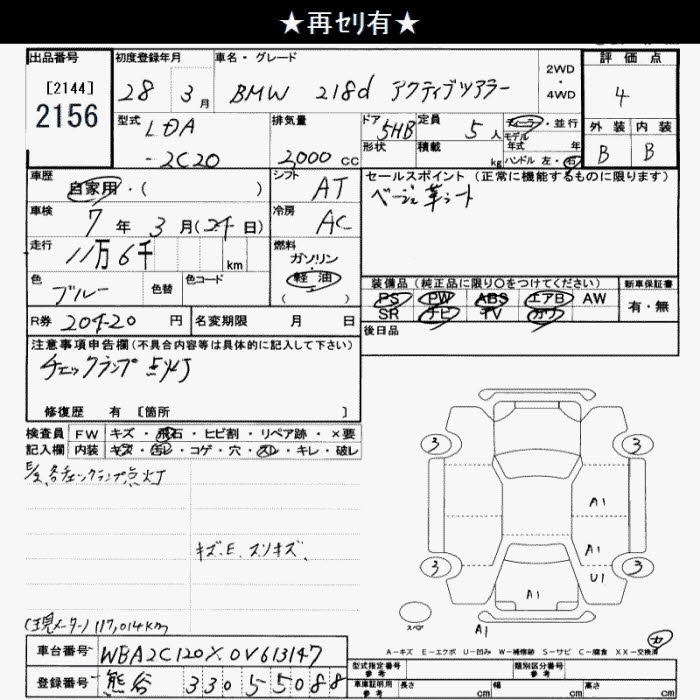 ★再ｾﾘ有★
出品番号
[2144]
2156
初度登録年月
28 3月
車名・グレード
BMW 218d アクティブツアラー
2WD
・
4WD
評価点
4
外装 内装
B B
型式
LDA
-2C20
排気量
2,000 cc
ドア 5HB
形状
定員 5人
積載 kg
ディーラー・並行
モデル
年式 年
ハンドル 左・右
車歴
自家用・( )
シフト AT
車検
7年 3月(24日)
冷房 AC
走行
11万6千 km
燃料
ガソリン
・
軽油
( )
色
ブルー
色替
色コード
R券 20420円
名変期限 月 日
セールスポイント(正常に機能するものに限ります)
ベージュ革シート
装備品(純正品に限り○をつけてください)
PS PW ABS エアB AW
SR ナビ TV カワ
新車保証書
有・無
後日品
注意事項申告欄(不具合内容等は具体的に記入して下さい)
チェックランプ点灯
修復歴 有 [箇所 ]
検査員
記入欄
FW キズ・飛石・ヒビ割・リペア跡・×要
内装 キズ・汚レ・コゲ・穴・スレ・キレ・破レ
各チェックランプ点灯
キズ、E、スリキズ、
(現メーター) 117,014km
3 3
A1
A1
3 U1 3
A1
スペア
A1
A-キズ E-エクボ U-凹み W-補修跡 S-サビ C-腐食 XX-交換済
車台番号 WBA2C120X0V613147
登録番号 熊谷 330 5 5088
型式指定番号
参考
類別区分番号
参考
車庫証明用
参考
長さ cm 幅 cm 高さ cm